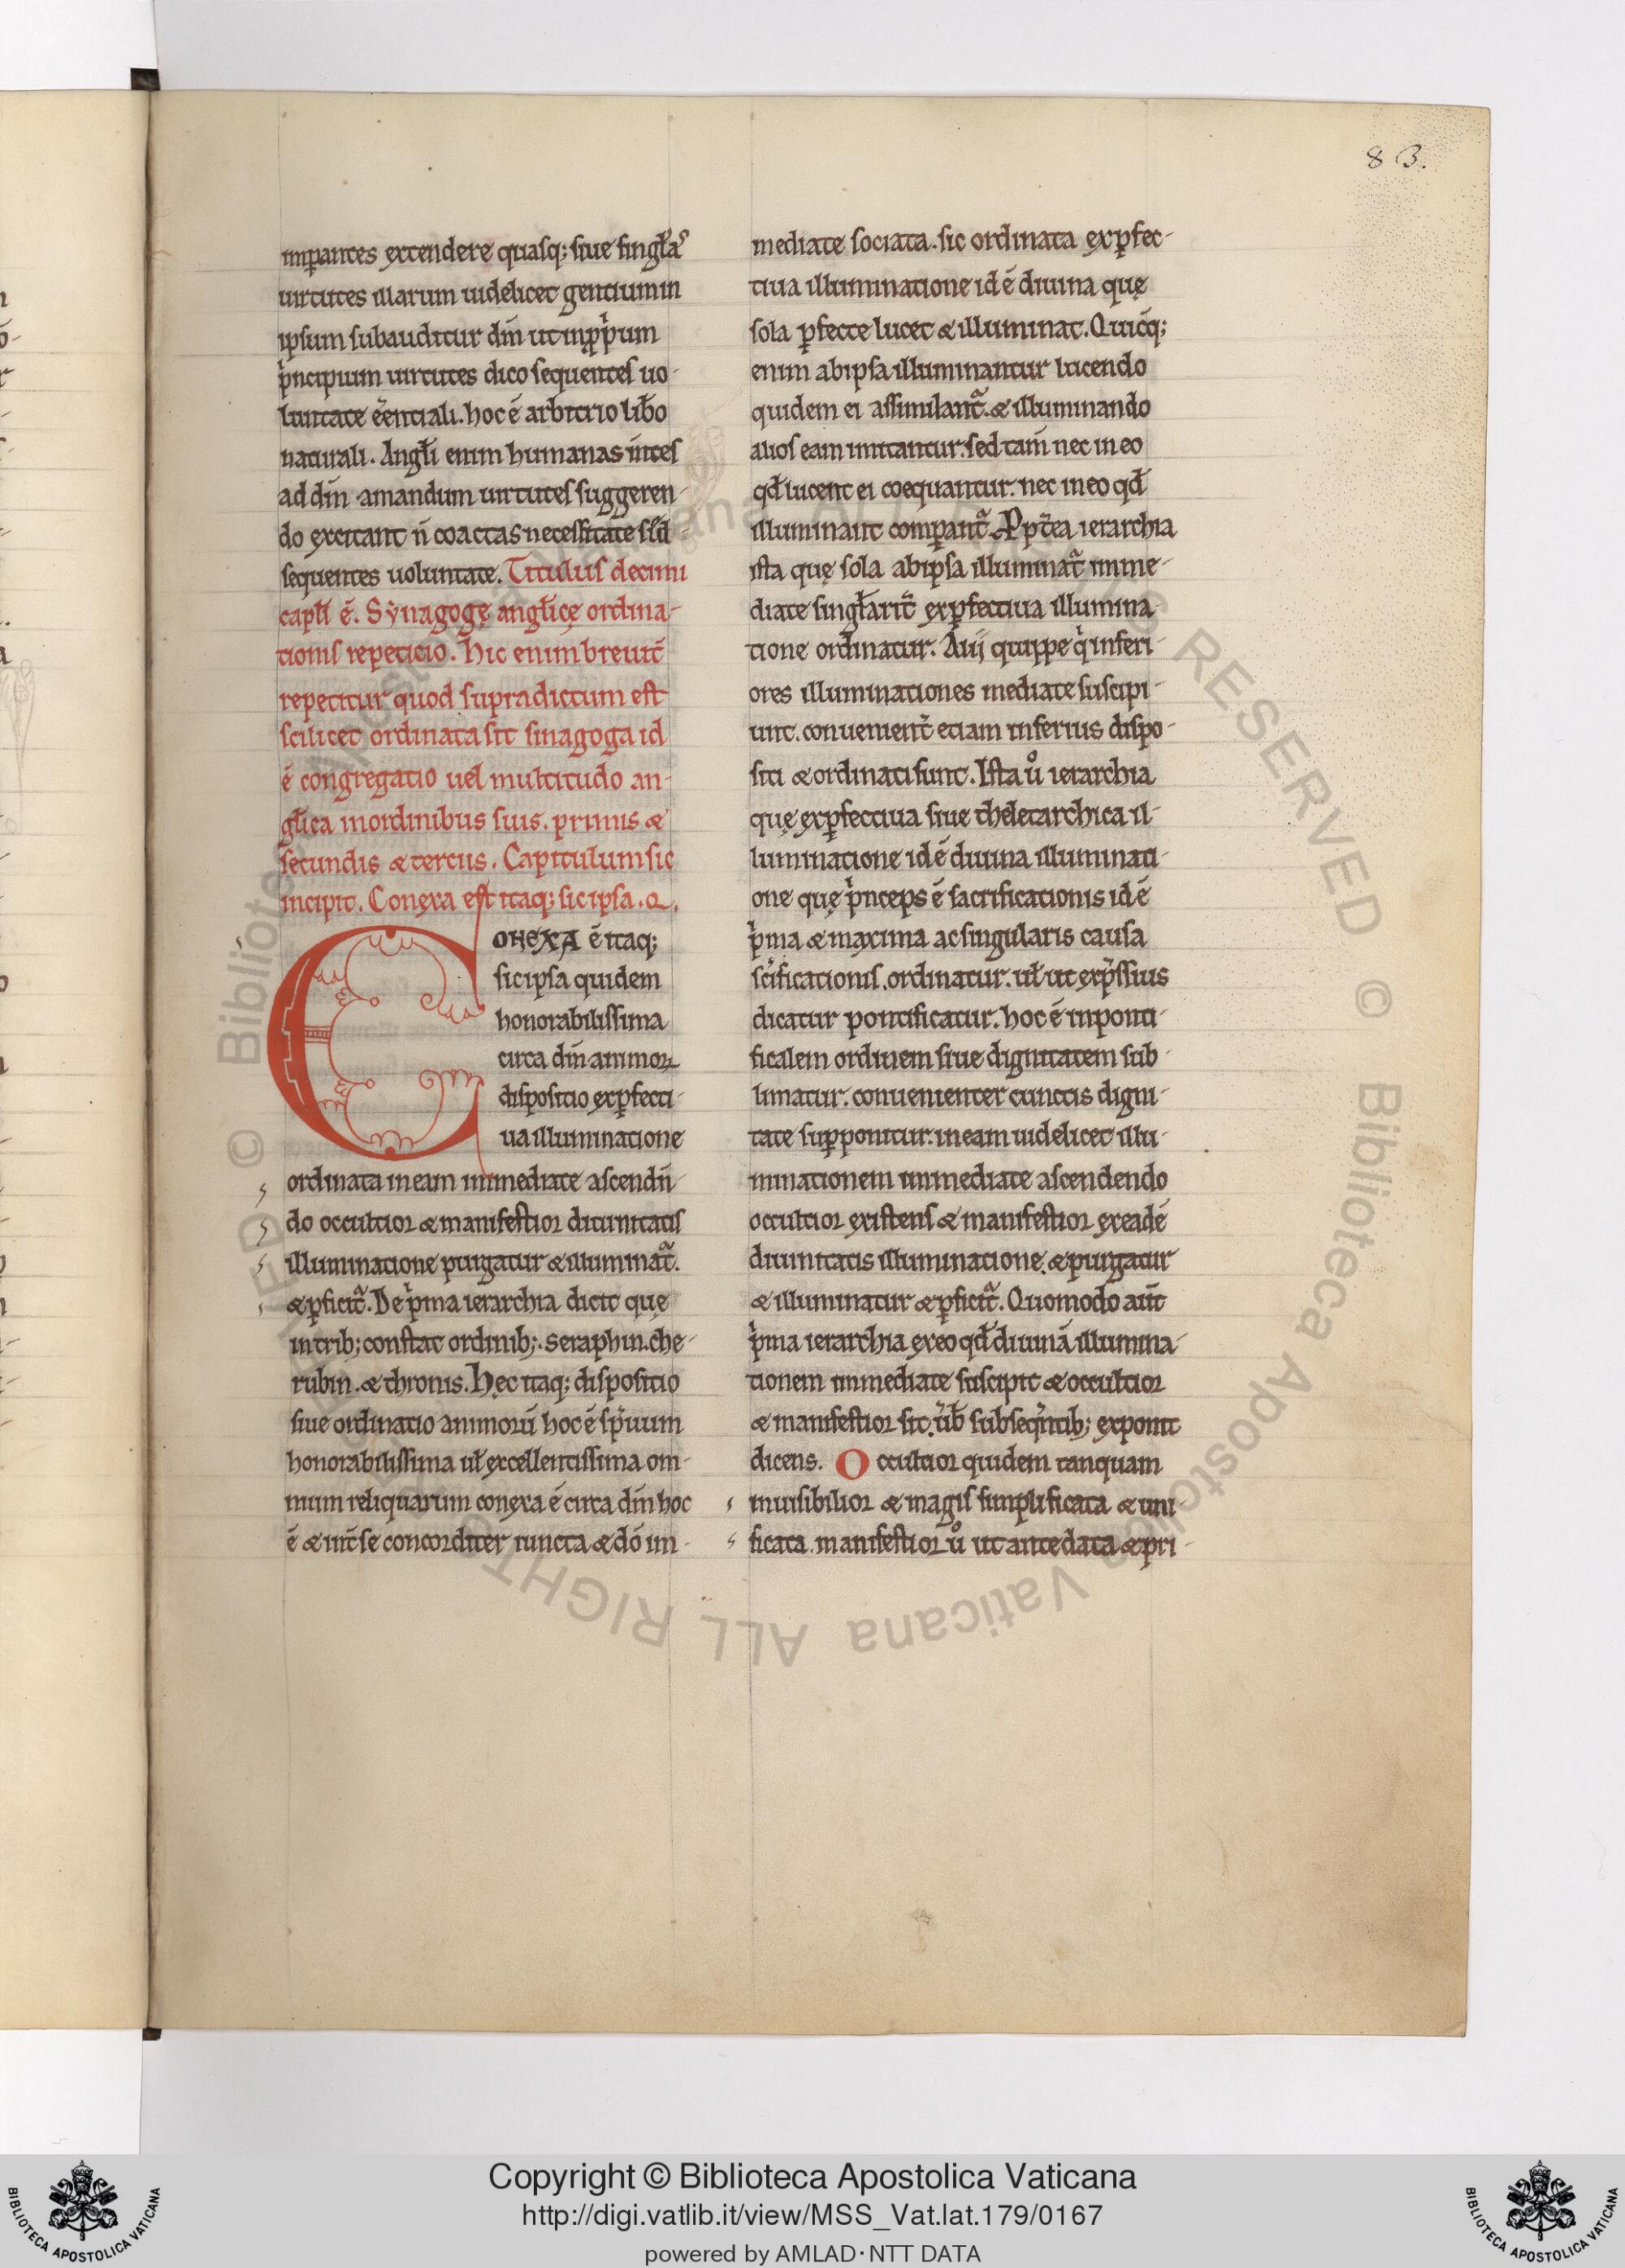 83.
imꝑantes extendere quasq; siue singl̄as
uirtutes illarum uidelicet gentium in
ipsum subauditur dn̄m ut in ꝓpͥum
pͥncipium uirtutes dico sequentes uo-
luntate eēntiali. hoc ē arbitrio lib̄o
naturali. Angl̄i enim humanas m̄tes
ad dn̄m amandum uirtutes suggeren-
do excitant n̄ coactas necessitate sꝫ d-
sequentes uoluntate. Titulus decimi
capl̄i ē. Synagogę angl̄icę ordina-
tionis repeticio. Hic enim breuit̄
repetitur quod supradictum est
scilicet ordinata sit sinagoga id
ē congregatio uel multitudo an-
gl̄ica in ordinibus suis. primis &
secundis & tercius. Capitulum sic
incipit. Conexa est itaq; sic ipsa. Q.
CONEXA ē itaq;
sic ipsa quidem
honorabilissima
circa dn̄m animoꝝ
dispositio ex ꝑfecti-
ua illuminatione
ordinata in eam inmediate ascendn̄-
do occultior & manifestior diuinitatis
illuminatione purgatur & illuminat̄.
& ꝑficit̄. De pͥma ierarchia dicit quę
in trib; constat ordinib;. seraphin. che-
rubin. & thronis. Hęc itaq; dispositio
siue ordinatio animorū hoc ē spūum
honorabilissima ul̄ excellentissima om-
nium reliquarum conexa ē circa dn̄m hoc
ē & int̄ se concorditer iuncta & dō im-
mediate sociata. sic ordinata ex ꝑfec-
tiua illuminatione id ē diuina quę
sola ꝑfecte lucet & illuminat. Quicq̄;
enim ab ipsa illuminantur lucendo
quidem ei assimilant̄. & illuminando
alios eam imitantur. sed tam̄ nec in eo
qd̄ lucent ei coequantur. nec in eo qd̄
illuminant comꝑant̄. Propt̄ea ierarchia
ista quę sola ab ipsa illuminat̄ inme-
diate singl̄arit̄ ex ꝑfectiua illumina-
tione ordinatur. Alij quippe qͥ inferi-
ores illuminationes mediate suscipi-
unt. conuenient̄ etiam inferius dispo-
siti & ordinati sunt. Ista uͦ ierarchia
quę ex ꝑfectiua siue theletarchica il-
luminatione id ē diuina illuminati-
one quę pͥnceps ē sacrificationis id ē
pͥma & maxima ac singularis causa
sc̄ificationis. ordinatur. ul̄ ut exp̄ssius
dicatur pontificatur. hoc ē in ponti-
ficalem ordinem siue dignitatem sub-
limatur. conuenienter cunctis digni-
tate supponitur. in eam uidelicet illu-
minationem inmediate ascendendo
occultior existens & manifestior ex eadē
diuinitatis illuminatione. & purgatur
& illuminatur & ꝑficit̄. Quomodo aūt
pͥma ierarchia ex eo qd̄ diuinā illumina-
tionem inmediate suscipit & occultior
& manifestior sit. u̓b subseqn̄tib; exponit
dicens. Occultior quidem tanquam
inuisibilior & magis simplificata & uni-
ficata. manifestior uͦ ut ante data & pri-
© Biblioteca Apostolica Vaticana ALL RIGHTS RESERVED © Biblioteca Apostolica Vaticana ALL RIGHTS RESERVED
Copyright © Biblioteca Apostolica Vaticana
http://digi.vatlib.it/view/MSS_Vat.lat.179/0167
powered by AMLAD·NTT DATA
BIBLIOTECA APOSTOLICA VATICANA
BIBLIOTECA APOSTOLICA VATICANA